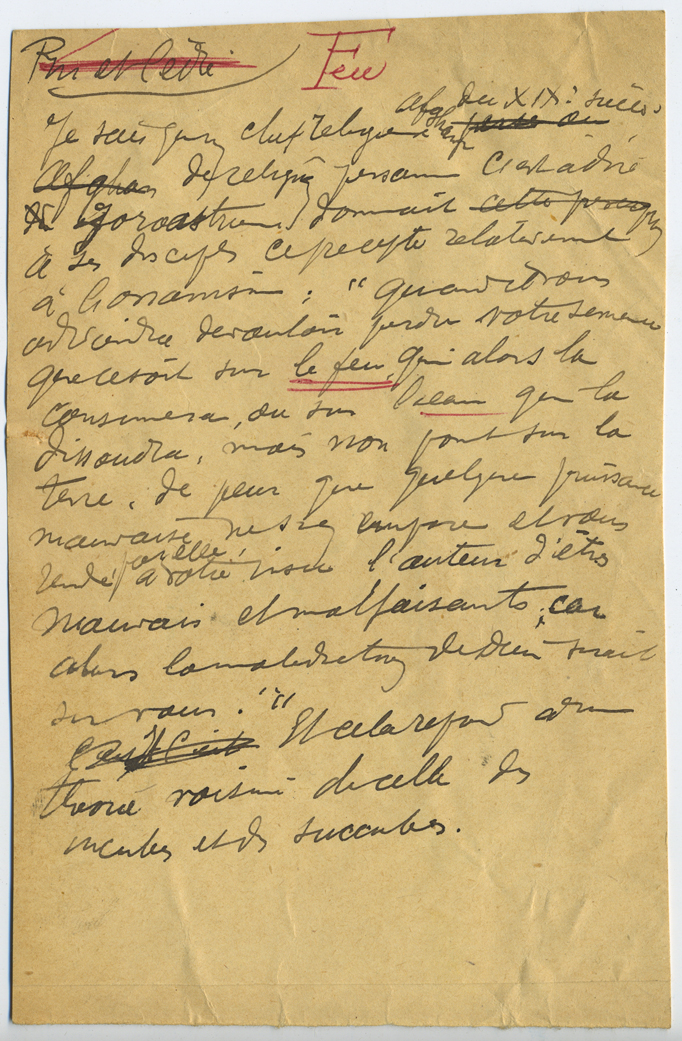 Feu
afghan du XIXe siècle
Je sais qu'un chef religieux
Afghan de religion persane c'est à dire
Zoroastrienne, donnait
à ses disciples ce precepte relativement
à l'onanisme : "Quand il vous
adviendra de vouloir perdre votre semence
que ce soit sur le feu, qui alors la
consumera, ou sur l'eau qui la
dissoudra, mais non point sur la
terre, de peur que quelque puissance
mauvaise ne s'en empare et vous
rende par elle, à votre insu l'auteur d'êtres
mauvais et malfaisants, car
alors la malediction de Dieu serait
sur vous." "
Et cela repond à une
théorie voisine de celle des
incubes et des succubes.